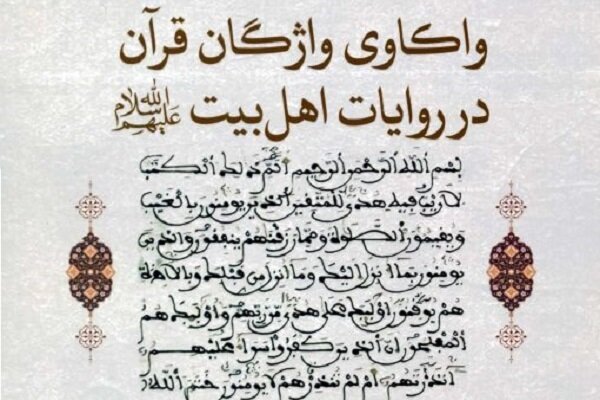 واکاوی واژگان قرآن
در روایات اهل بیت علیهم السلام
بسم الله الرحمن الرحيم الم ذلك الكتب
لا ريب فيه هدى للمتقين الذين يومنون بالغيب
ويقيمون الصلوة ومما رزقنهم ينفقون والذين
يومنون بما انزل اليك وما انزل من قبلك وبالاخرة
هم يوقنون اوليك على هدى من ربهم واوليك هم
المفلحون ان الذين كفروا سواء عليهم
ءانذرتهم ام لم تنذرهم لا يومنون ختم الله